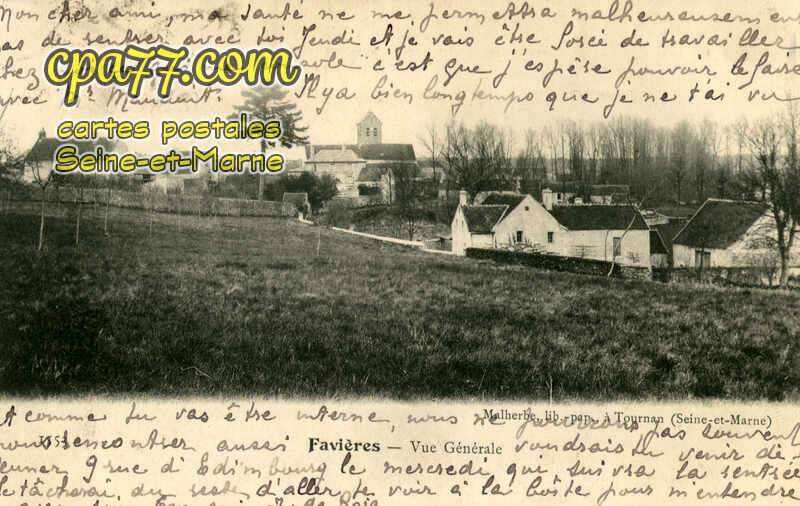 Mon cher ami, ma santé ne me permettra malheureusement
pas de rentrer avec toi Jeudi et je vais être forcé de travailler
chez
cpa77.com
c'est que j'espère pouvoir le faire
avec
Il y a bien longtemps que je ne t'ai vu
cartes postales
Seine-et-Marne
Malherbe, lib.-pap., à Tournan (Seine-et-Marne)
Et comme tu vas être interne, nous ne pourrons pas souvent
nous rencontrer aussi
Favières — Vue Générale
voudrais tu venir dé-
jeuner 9 rue d'Edimbourg le mercredi qui suivra la rentrée
Je tâcherai, du reste d'aller te voir à la boîte pour m'entendre